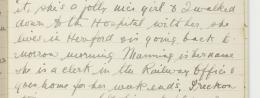 it, she's a jolly nice girl & I walked
down to the Hospital with her, she
lives in Hereford & is going back to
morrow morning Manning is her name
she is a clerk in the Railway Office &
goes home for her week ends, I reckon